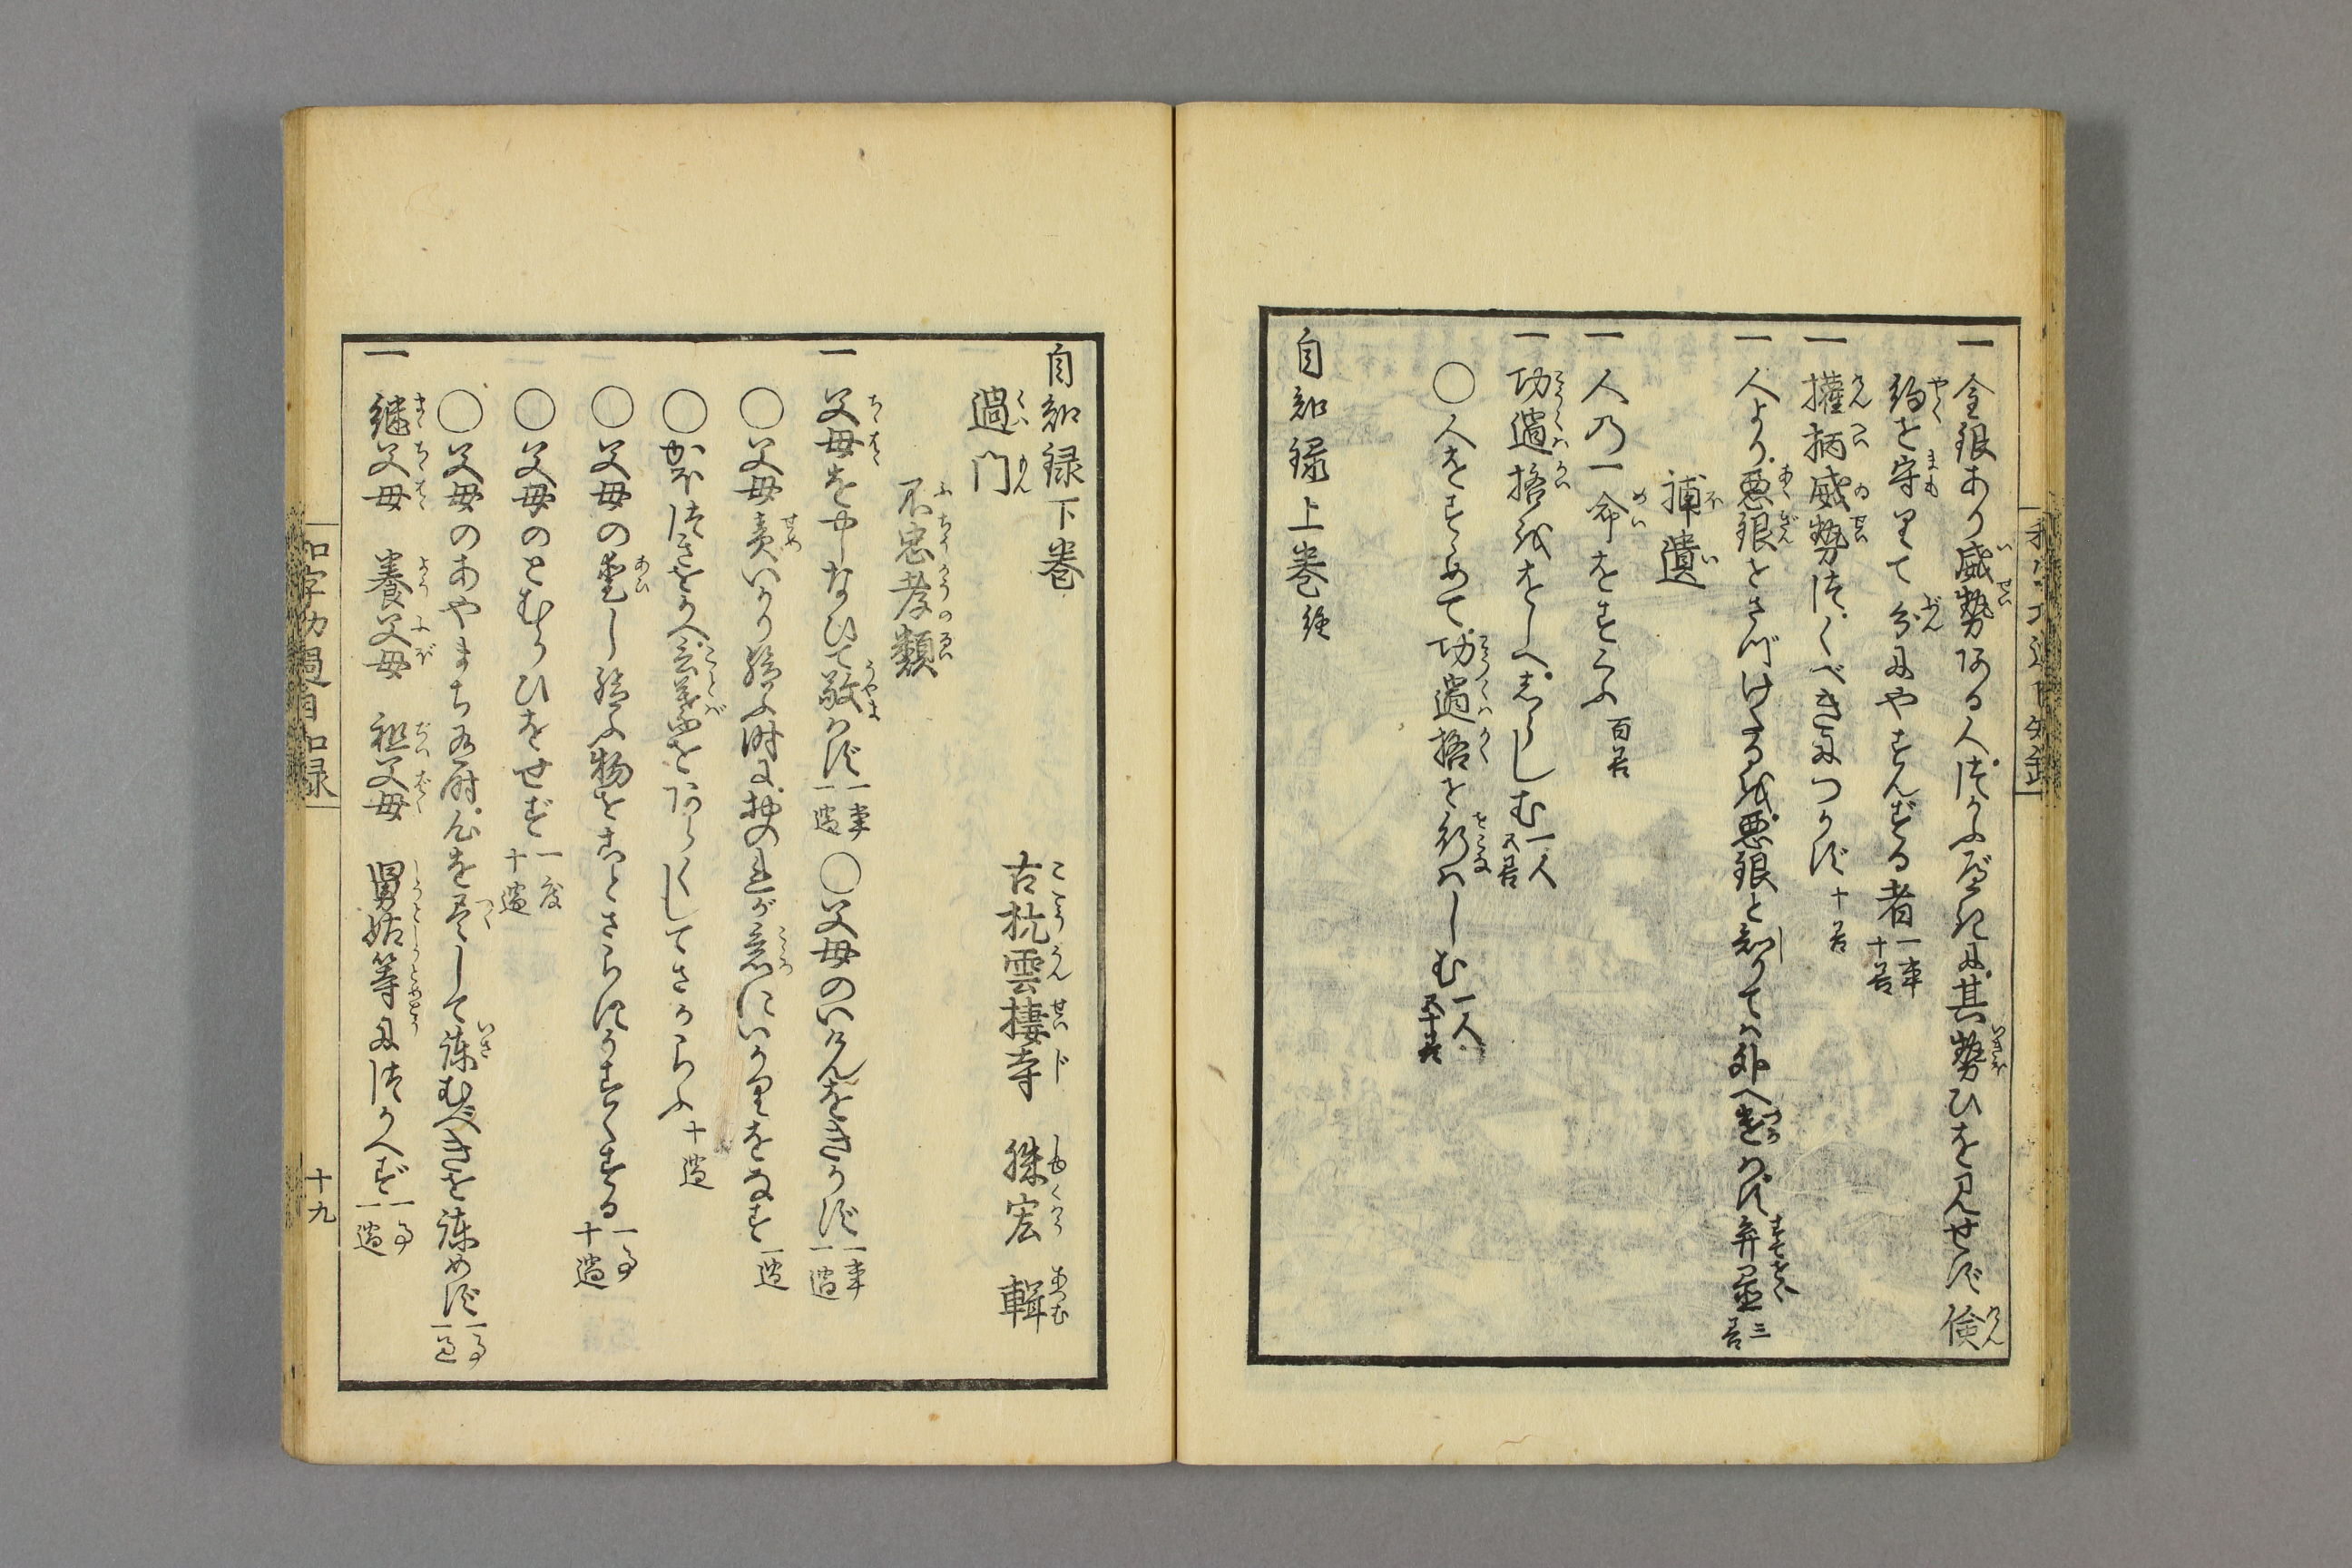 一金銀あり威勢ある人つかふべきに其勢ひを見せず倹
約を守りて分にやすんずる者一事十善
一権柄威勢つくべきにつかず十善
一人より悪銀をさづけたるを悪銀と知りては外へ遣はず弃置三善
補遺
一人の一命をすくふ百善
一功過格をおしへしらしむ一人五善
○人をすゝめて功過格を行はしむ一人五十善
自知録上巻終
自知録下巻
古杭雲棲寺 袾宏 輯
過門
不忠孝類
一父母をやしなひて敬はず一事一過○父母のいけんをきかず一事一過
○父母責いかり給ふ時に其のれが意にいかりをなす一過
○かほつきをかへ言葉をあらくしてさからふ十過
○父母の愛し給ふ物をことさらにうすくする一事十過
○父母のとむらひをせず一度十過
○父母のあやまち有時心を尽して諫むべきを諫めず一事一過
一継父母 養父母 祖父母 舅姑等につかへず一事一過
和字功過自知録
十九